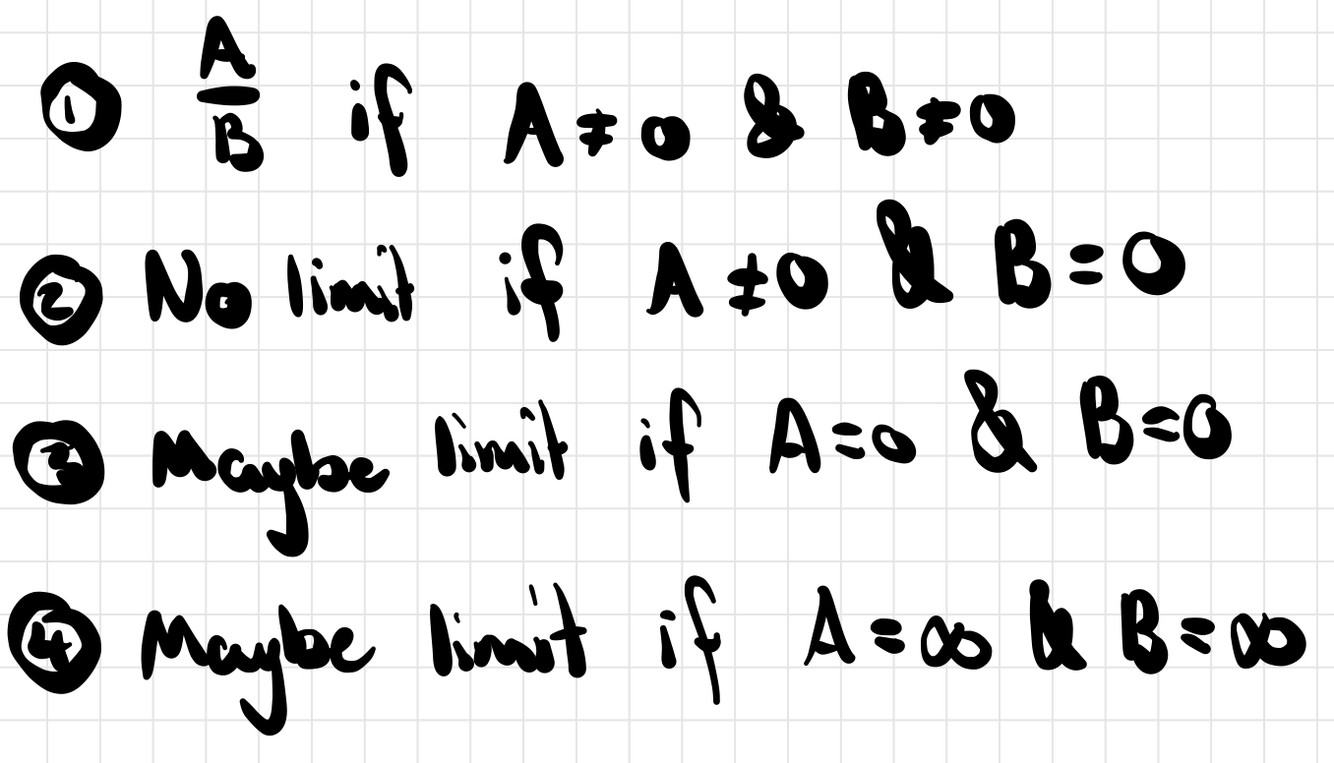 ① A/B if A ≠ 0 & B ≠ 0
② No limit if A ≠ 0 & B = 0
③ Maybe limit if A = 0 & B = 0
④ Maybe limit if A = ∞ & B = ∞